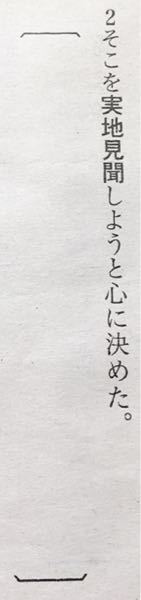 2そこを実地見聞しようと心に決めた。